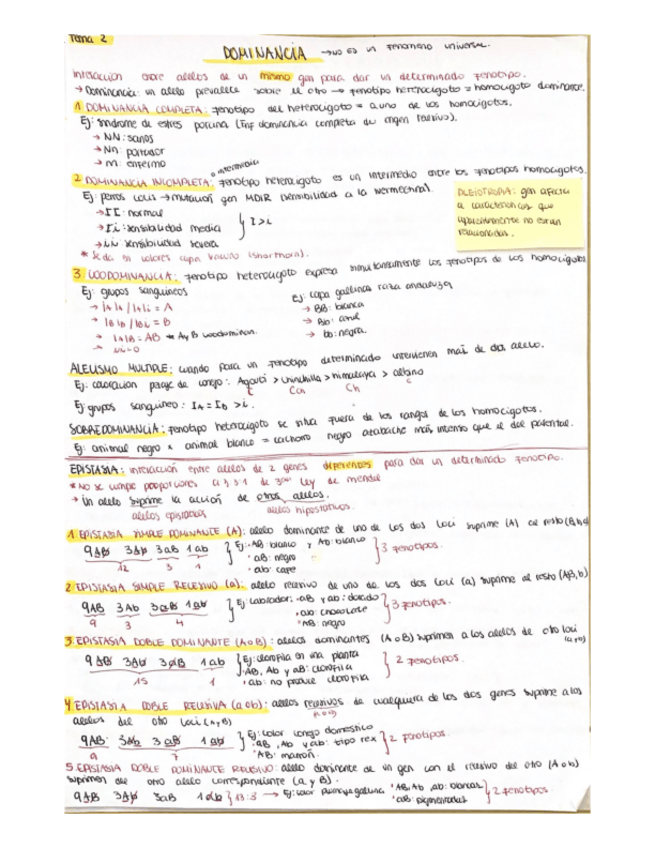 Tema 2
DOMINANCIA → no es un fenomeno universal.
Interaccion entre alelos de un mismo gen para dar un determinado fenotipo.
→ Dominancia: un alelo prevalece sobre el otro → fenotipo heterocigoto = homocigoto dominante.
1 DOMINANCIA COMPLETA: fenotipo del heterocigoto = a uno de los homocigotos.
Ej: sindrome de estres porcino (Enf dominancia completa de origen recesivo).
→ NN: sanos
→ Nn: portador
→ nn: enfermo
intermedia
2 DOMINANCIA INCOMPLETA: fenotipo heterocigoto es un intermedio entre los fenotipos homocigotos.
Ej: perros collis → mutación gen MDIR (sensibilidad a la ivermectina).
→ II: normal
→ Ii: sensibilidad media } I > i
→ ii sensibilidad severa
* Se da en colores capa vacuno (shorthorn).
PLEIOTROPIA: gen afecta
a caracteristicas que
aparentemente no estan
relacionadas.
3 CODOMINANCIA: fenotipo heterocigoto expresa simultaneamente los fenotipos de los homocigotos
Ej: grupos sanguineos
→ IAIA / IAi = A
→ IBIB / IBi = B
→ IAIB = AB * A y B codominan.
→ ii = O
Ej: capa gallinas raza andaluza
→ BB: blanca
→ Bb: azul
→ bb: negra.
ALELISMO MULTIPLE: cuando para un fenotipo determinado intervienen mas de dos alelo.
Ej: coloracion pelaje de conejo: Agouti > chinchilla > himalaya > albino
C Cch Ch c
Ej: grupos sanguineo: IA = IB > i.
SOBREDOMINANCIA: fenotipo heterocigoto se situa fuera de los rangos de los homocigotos.
Ej: animal negro x animal blanco = cachorro negro azabache mas intenso que el del parental.
EPISTASIA: interaccion entre alelos de 2 genes diferentes para dar un determinado fenotipo.
* No se cumple proporciones 9:3:3:1 de 3ra Ley de mendel
→ Un alelo suprime la acción de otros alelos.
alelos epistaticos alelos hipostaticos.
1 EPISTASIA SIMPLE DOMINANTE (A): alelo dominante de uno de los dos loci suprime (A) al resto (B,b)
9 AB 3 Ab 3 aB 1 ab } Ej: · AB: blanco y Ab: blanco } 3 fenotipos.
12 3 1 · aB: negro
· ab: cafe
2 EPISTASIA SIMPLE RECESIVO (a): alelo recesivo de uno de los dos loci (a) suprime al resto (B,b)
9 AB 3 Ab 3 aB 1 ab } Ej: Labrador: · aB y ab: dorado } 3 fenotipos.
9 3 4 · Ab: chocolate
· AB: negro
3 EPISTASIA DOBLE DOMINANTE (A o B): alelos dominantes (A o B) suprimen a los alelos de otro loci
9 AB 3 Ab 3 aB 1 ab } Ej: clorofila en una planta } 2 fenotipos.
15 1 · AB, Ab y aB: clorofila
· ab: no produce clorofila
4 EPISTASIA DOBLE RECESIVA (a o b): alelos recesivos de cualquiera de los dos genes suprime a los
alelos del otro loci (A y B)
9 AB: 3 Ab 3 aB 1 ab } Ej: color conejo domestico } 2 fenotipos.
9 7 · aB, Ab y ab: tipo rex
· AB: marron.
5 EPISTASIA DOBLE DOMINANTE RECESIVO: alelo dominante de un gen con el recesivo del otro (A o b)
suprimen del otro alelo correspondiente (a y B).
9 AB 3 Ab 3 aB 1 ab } 13:3 → Ej: color plumaje gallina · AB, Ab, ab: blancas } 2 fenotipos.
· aB: pigmentadas